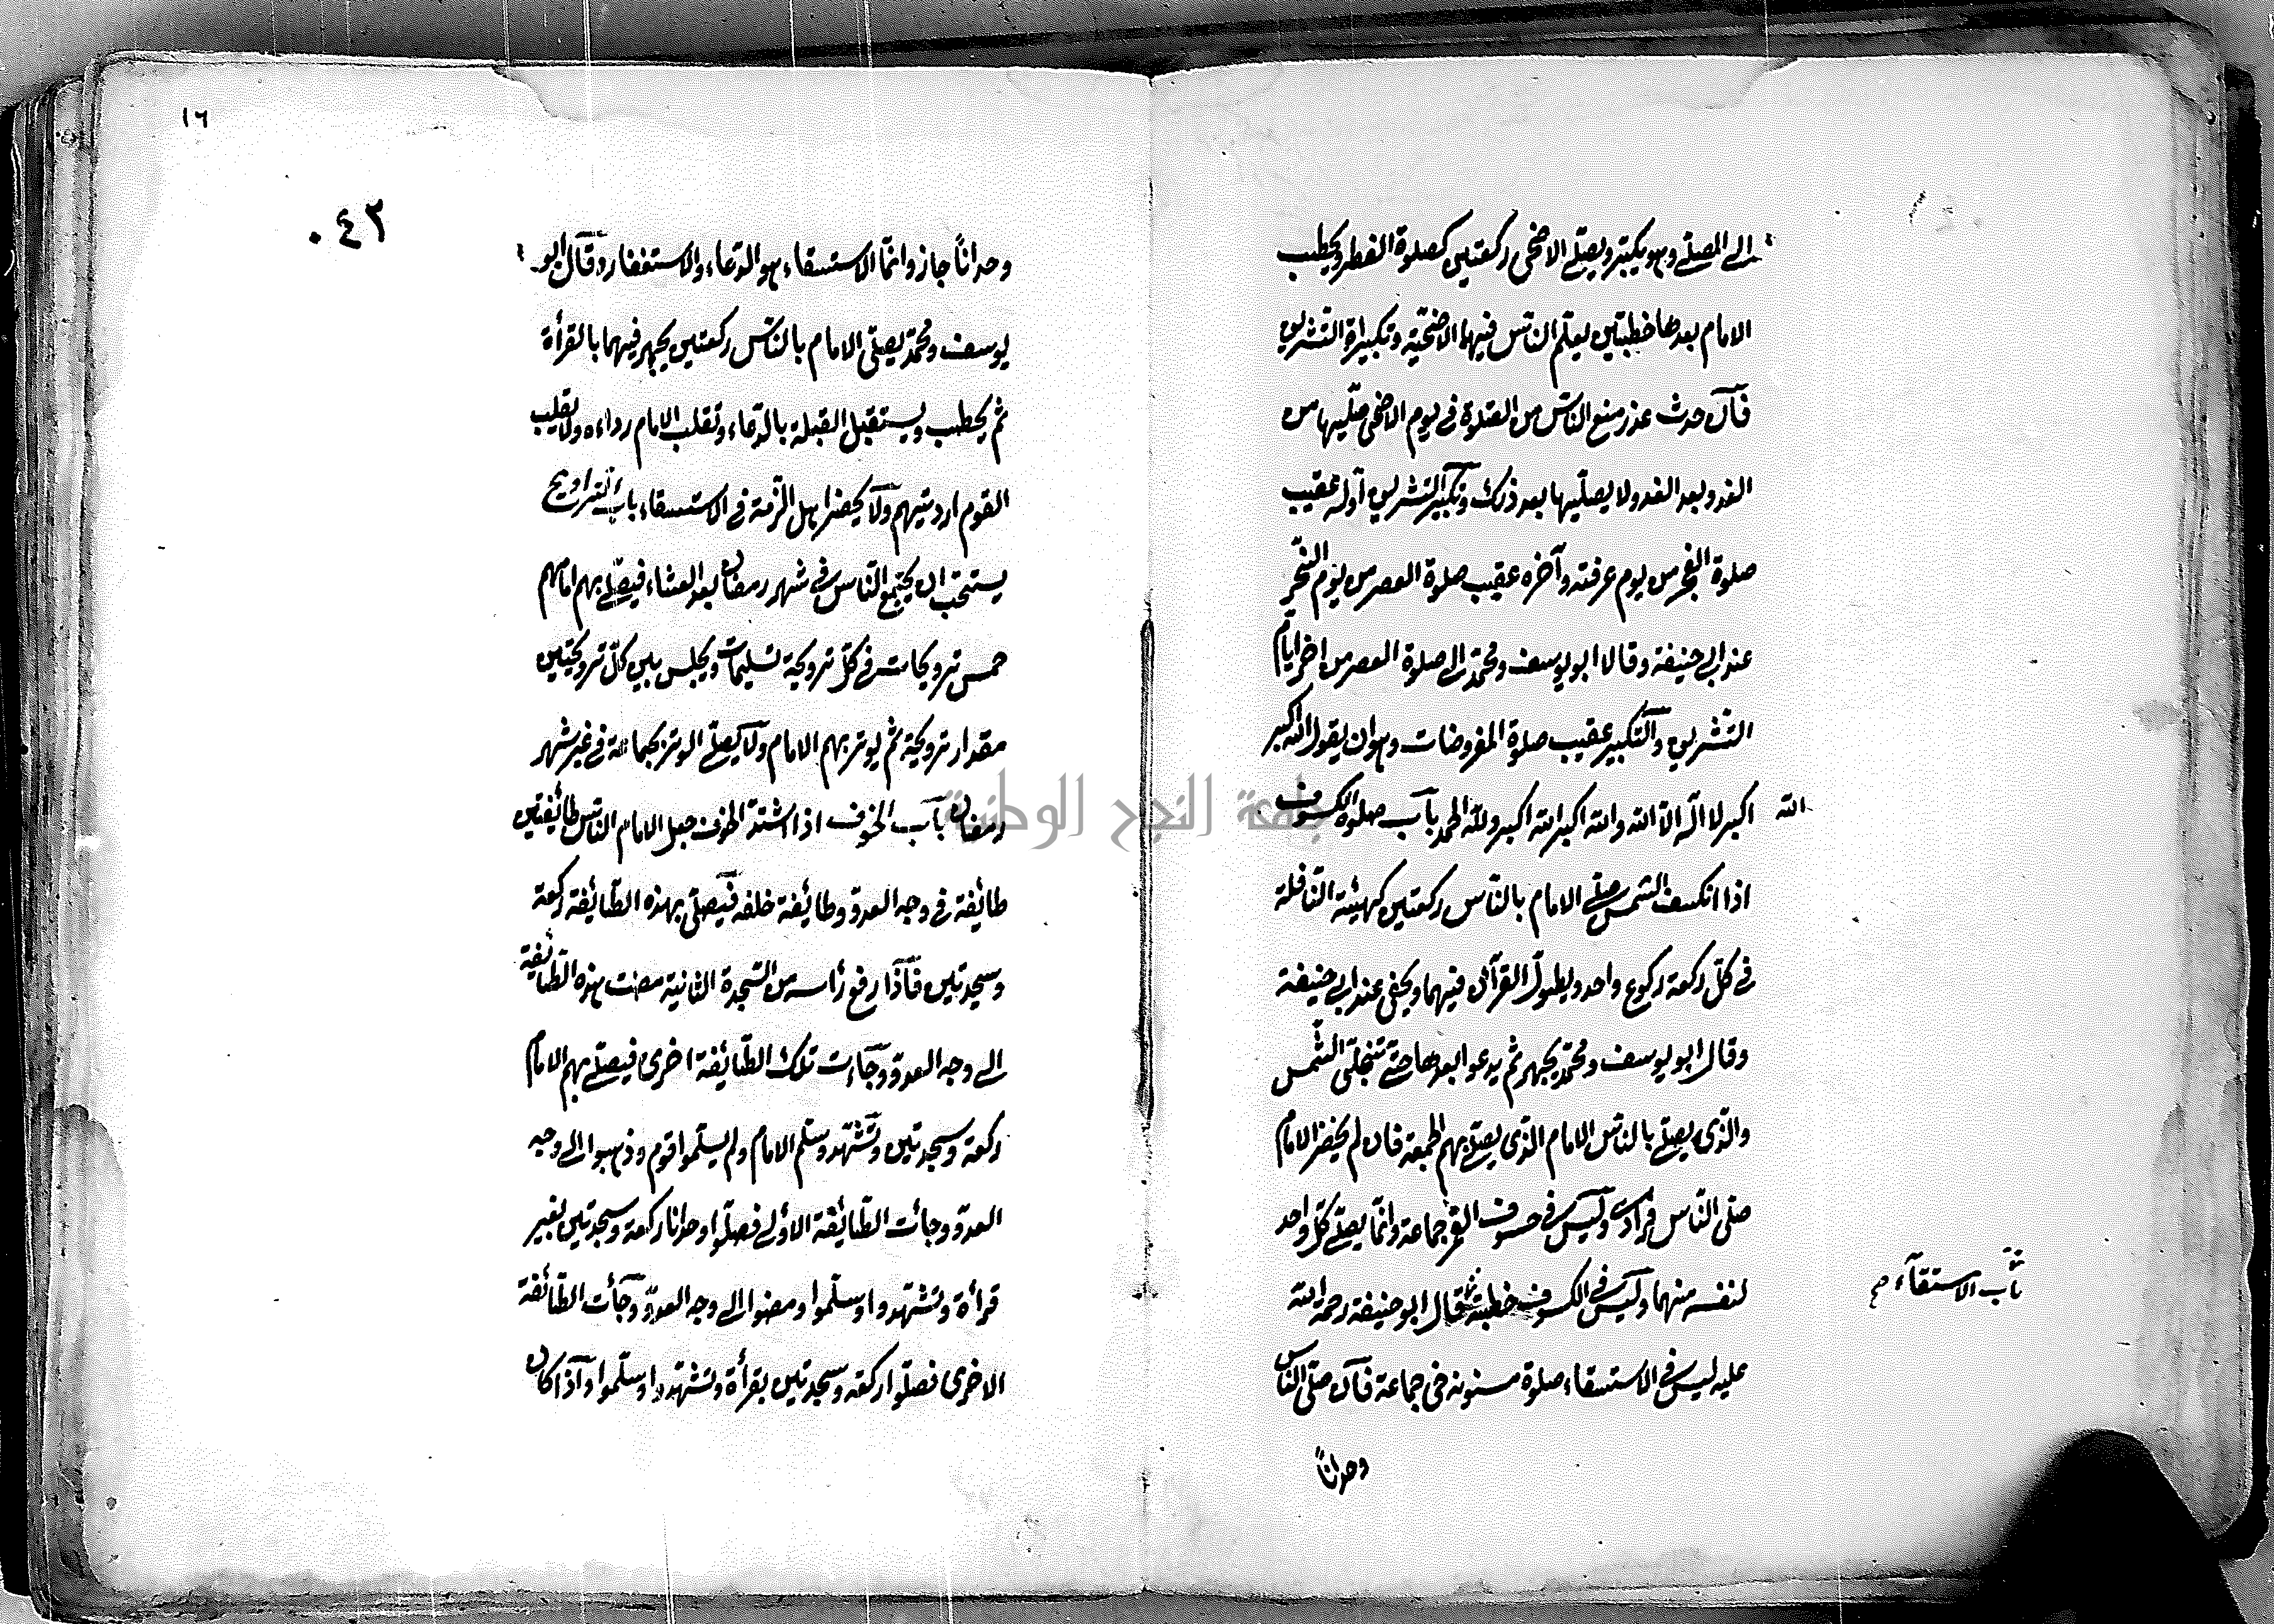 الى المصلى وهو يكبر ويصلى الاضحى ركعتين كصلوة الفطر ويخطب
الامام بعدها خطبتين يعلم الناس فيهما الاضحية وتكبيرة التشريق
فآن حدث عذر منع الناس من الصلوة فى يوم الاضحى صليها من
الغد وبعد الغد ولا يصليها بعد ذلك وتكبير التشريق آوله عقيب
صلوة الفجر من يوم عرفة وآخره عقيب صلوة العصر من يوم النحر
عند ابى حنيفة وقالا ابو يوسف ومحمد الى صلوة العصر من اخر ايام
التشريق وآلتكبير عقيب صلوة المفروضات وهو ان يقول الله اكبر
الله اكبر لا اله الا الله والله اكبر الله اكبر ولله الحمد بآب صلوة الكسوف
اذا انكسف الشمس صلى الامام بالناس ركعتين كهيئة النافلة
فى كل ركعة ركوع واحد ويطول القرآن فيهما ويخفى عند ابى حنيفة
وقال ابو يوسف ومحمد يجهر ثم يدعوا بعدها حتى تنجلى الشمس
والذى يصلى بالناس الامام الذى يصلى بهم الجمعة فان لم يحضر الامام
صلى الناس فرادى وليس فى خسوف القمر جماعة وانما يصلى كل واحد
لنفسه منهما وليس فى الكسوف خطبة قال ابو حنيفة رحمه الله
بآب الاستسقآء صح
عليه ليس فى الاستسقاء صلوة مسنونه فى جماعة فآن صلى الناس
وحداناً
١٦
٠٤٢
وحداناً جاز وانما الاستسقاء هو الدعاء والاستغفار وقآل ابو
يوسف ومحمد يصلى الامام بالناس ركعتين يجهر فيهما بالقرأة
ثم يخطب ويستقبل القبلة بالدعاء وتقلب الامام رداءه ولا يقلب
القوم ارديتهم ولآ يحضر اهل الذمة فى الاستسقاء باب التراويح
يستحب ان يجتمع الناس فى شهر رمضان بعد العشاء فيصلى بهم امامهم
خمس ترويحات فى كل ترويحة تسليمات ويجلس بين كل ترويحتين
مقدار ترويحة ثم يوتر بهم الامام ولآ يصلى الوتر بجماعة فى غير شهر
رمضان بآب الخوف اذا اشتد الخوف جعل الامام الناس طائيفتين
طائيفة فى وجه العدو وطائيفة خلفه فيصلى بهذه الطائيفة ركعة
وسجدتين فآذا رفع رأسه من السجدة الثانية مضت هذه الطائيفة
الى وجه العدو وجآءت تلك الطائيفة اخرى فيصلى بهم الامام
ركعة وسجدتين وتشهد وسلم الامام ولم يسلموا قوم وذهبوا الى وجه
العدو وجائت الطائيفة الاولى فصلوا وحدانا ركعة وسجدتين بغير
قرأة وتشهدوا وسلموا ومضوا الى وجه العدو وجآئت الطائفة
الاخرى فصلوا ركعة وسجدتين بقرأة وتشهدوا وسلموا وآذا كان
جامعة النجاح الوطنية